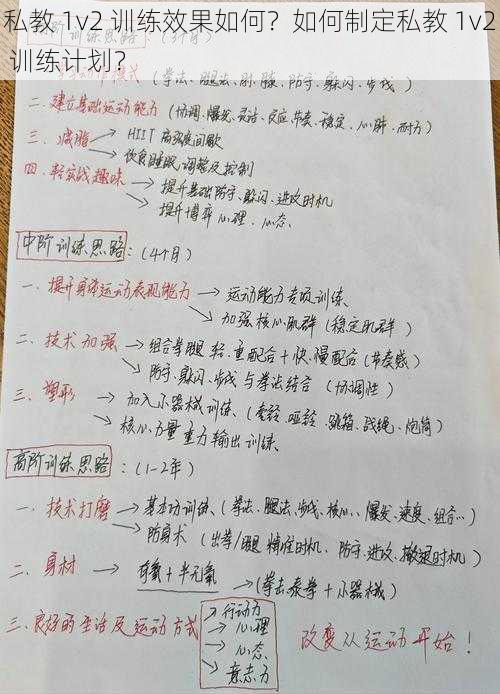 私教 1v2 训练效果如何？如何制定私教 1v2
训练计划？
模式 (拳法、腿法、肘、膝、防守、躲闪、步伐)
二、建立基础运动能力 (协调、爆发、灵活、反应、节奏、稳定、心肺、耐力)
三、减脂 → HIIT 高强度间歇
→ 饮食睡眠、调整及控制
四、轻实战趣味 → 提升基础防守、躲闪、进攻时机
→ 提升博弈心理、心态、
中阶训练思路：(4个月)
一、提升身体运动表现能力 → 运动能力专项训练、
→ 加强核心肌群 (稳定肌群)
二、技术加强 → 组合拳腿 轻、重配合 + 快、慢配合 (节奏感)
→ 防守、躲闪、步伐与拳法结合 (协调性)
三、塑形 → 加入小器械训练、(壶铃 哑铃 跳箱、战绳、炮筒)
→ 核心力量 重力输出训练、
高阶训练思路：(1-2年)
一、技术打磨 → 基本功训练、(拳法、腿法、步伐、核心、爆发、速度、组合..)
→ 防身术 (出拳/腿 精准时机、防守、进攻、撤退时机)
二、身材 → 有氧 + 半无氧 → (拳击泰拳 + 小器械)
三、良好的生活及运动方式 → 行动力
→ 心理
→ 心态、
→ 意志力
改变从运动开始！